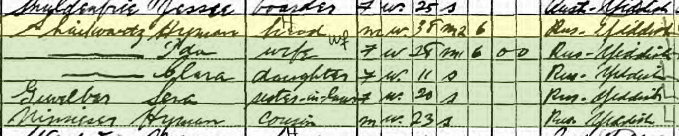 Jessee boarder F W. 25 S Aust-Yiddish
Shailwartz Hyman head M W. 38 M2 6 Rus-Yiddish
Ida wife F W. 28 M1 6 0 0 Rus-Yiddish
Clara daughter F W. 11 S Rus-Yiddish
Gewelber Sera sister-in-law F W. 20 S Rus-Yiddish
Hyman cousin M W. 23 S Rus-Yiddish